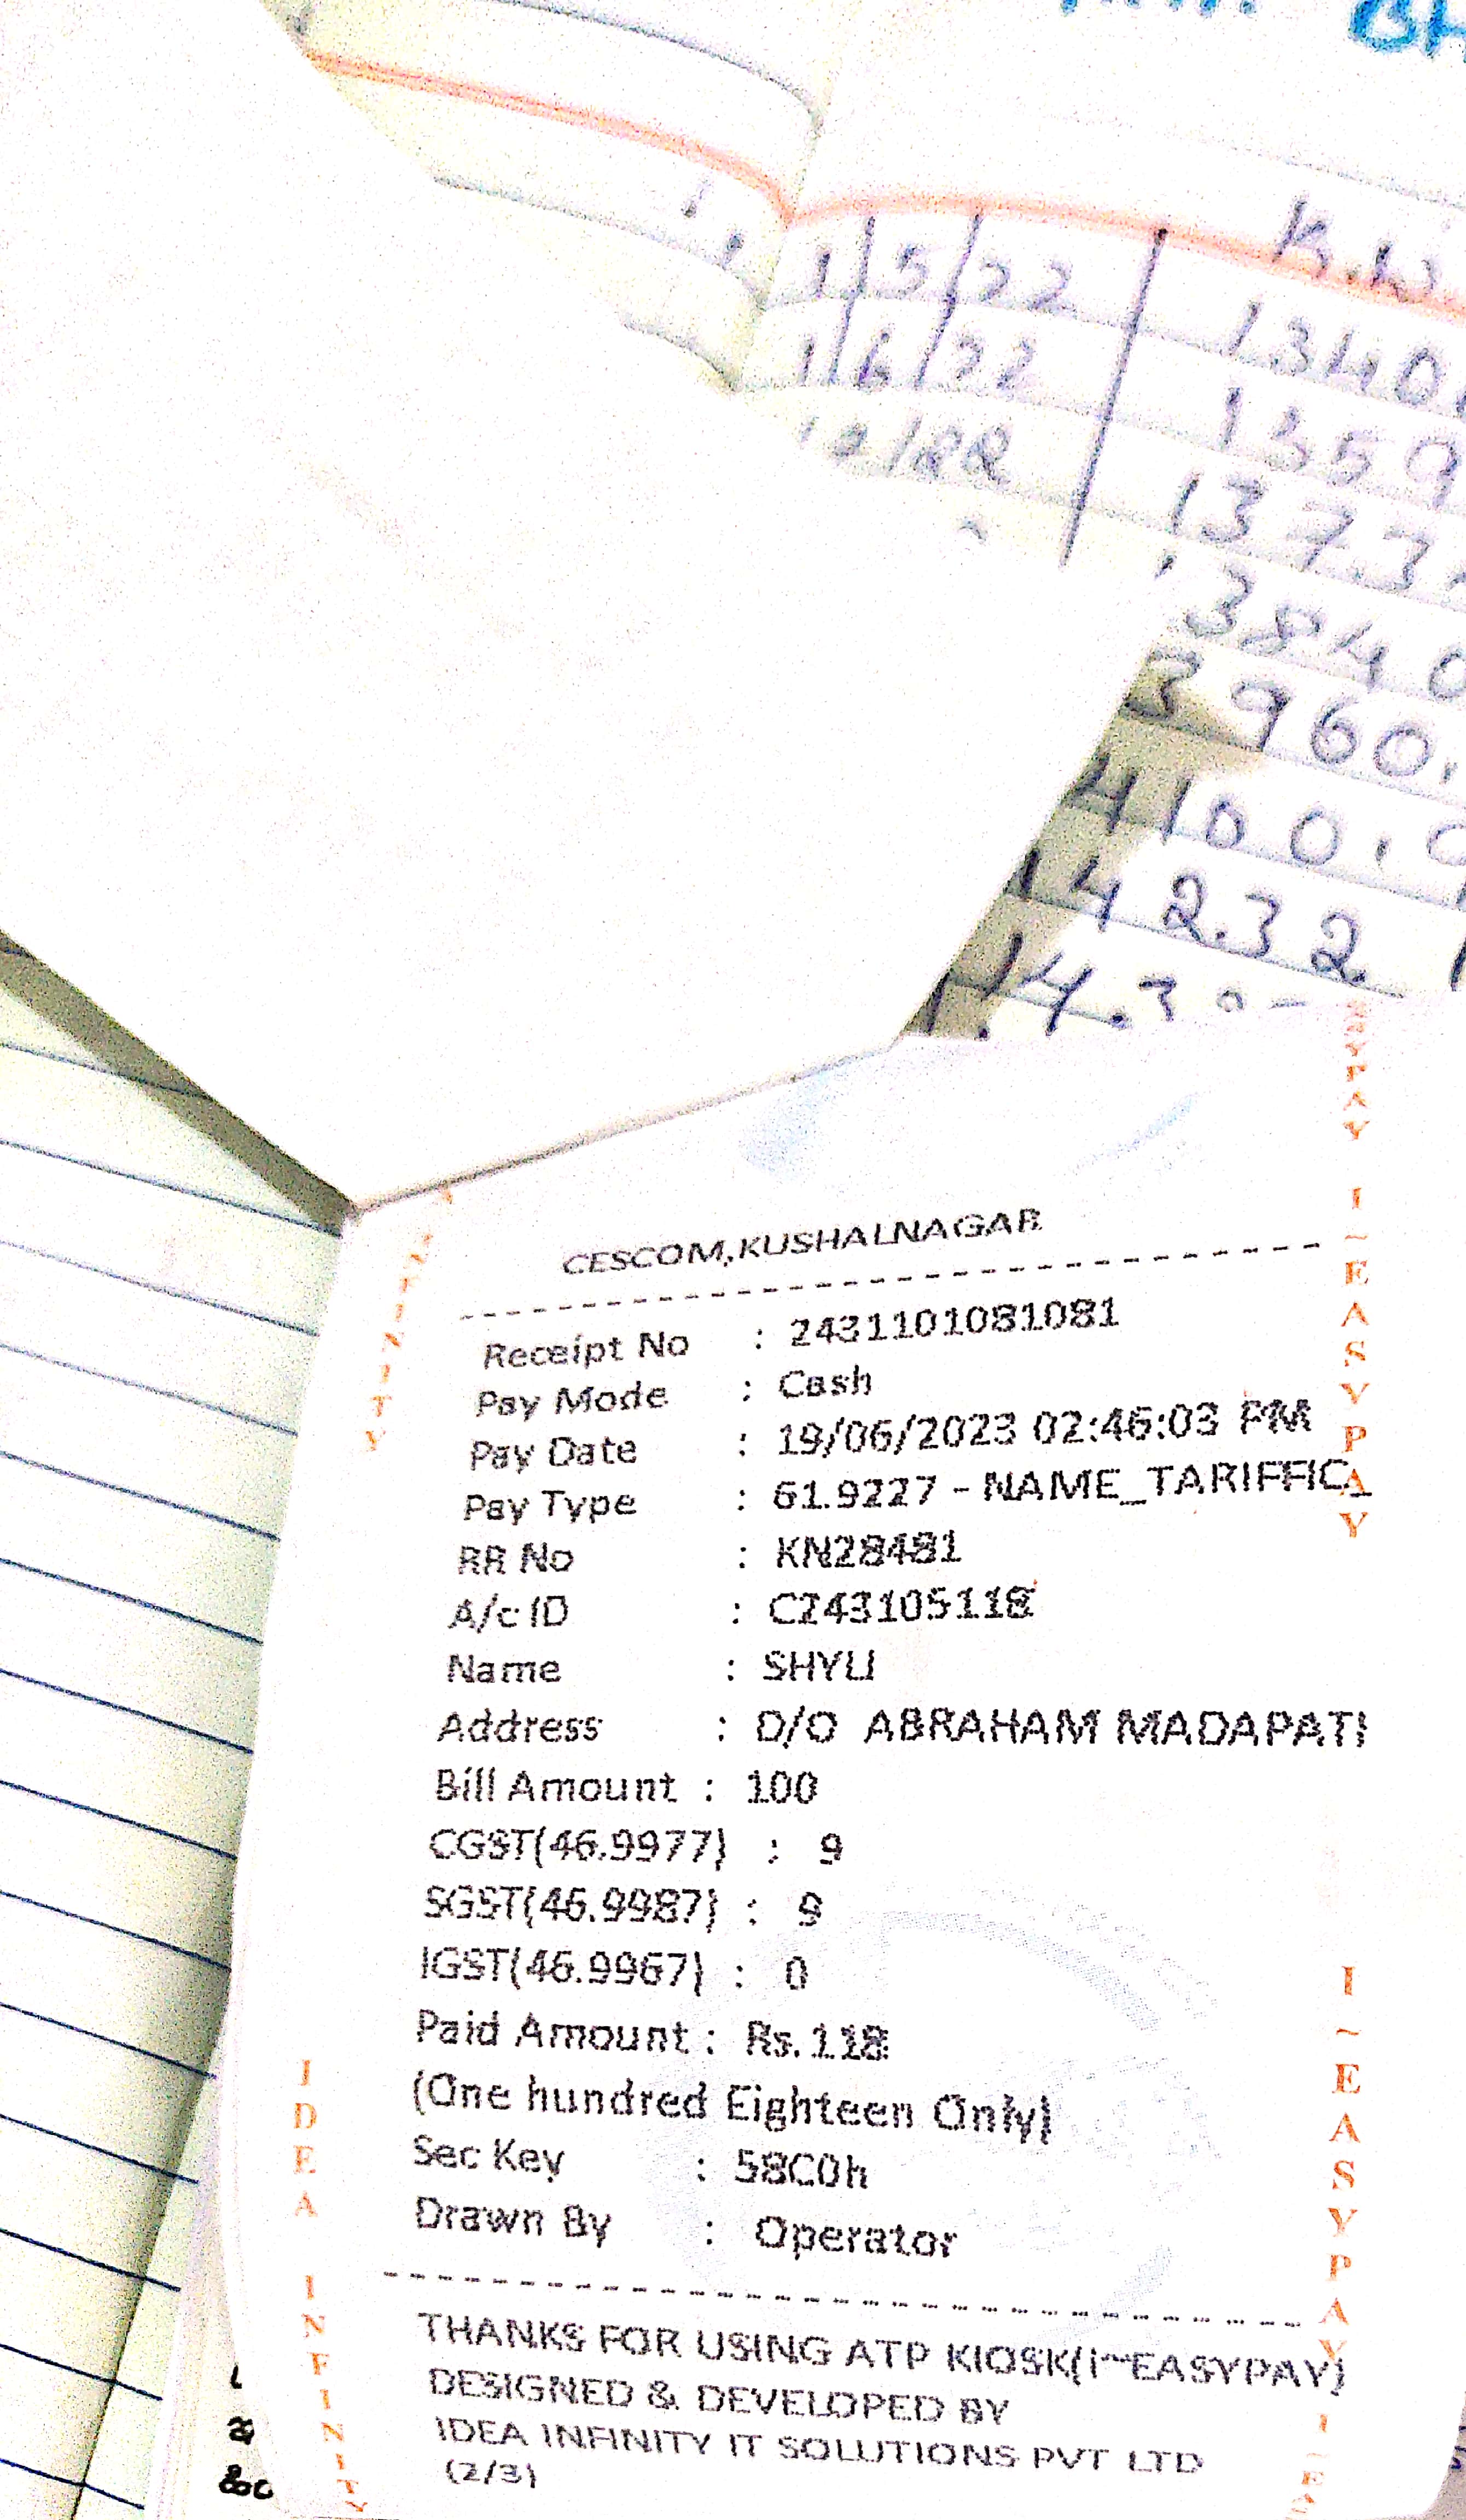 BH
K.W
1/5/22 1340
1/6/22 1359
1373
3840
3960.
4100.
142.32
CESCOM,KUSHALNAGAR
Receipt No : 2431101081081
Pay Mode : Cash
Pay Date : 19/06/2023 02:46:03 PM
Pay Type : 61.9227 - NAME_TARIFFIC_
RR No : KN28481
A/c ID : C243105118
Name : SHYLI
Address : D/O ABRAHAM MADAPATI
Bill Amount : 100
CGST(46.9977) : 9
SGST(46.9987) : 9
IGST(46.9967) : 0
Paid Amount : Rs.118
(One hundred Eighteen Only)
Sec Key : 58C0h
Drawn By : Operator
THANKS FOR USING ATP KIOSK(i~EASYPAY)
DESIGNED & DEVELOPED BY
IDEA INFINITY IT SOLUTIONS PVT LTD
(2/3)
INFINITY
IDEA INFINITY
EASYPAY I~EASYPAY
I~EASYPAY